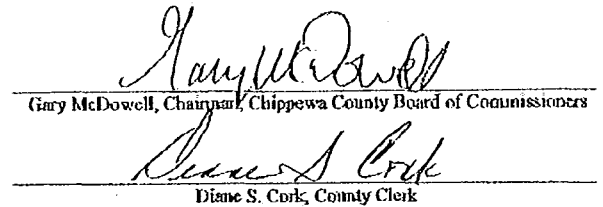 Gary McDowell
Gary McDowell, Chairman, Chippewa County Board of Commissioners
Diane S Cork
Diane S. Cork, County Clerk